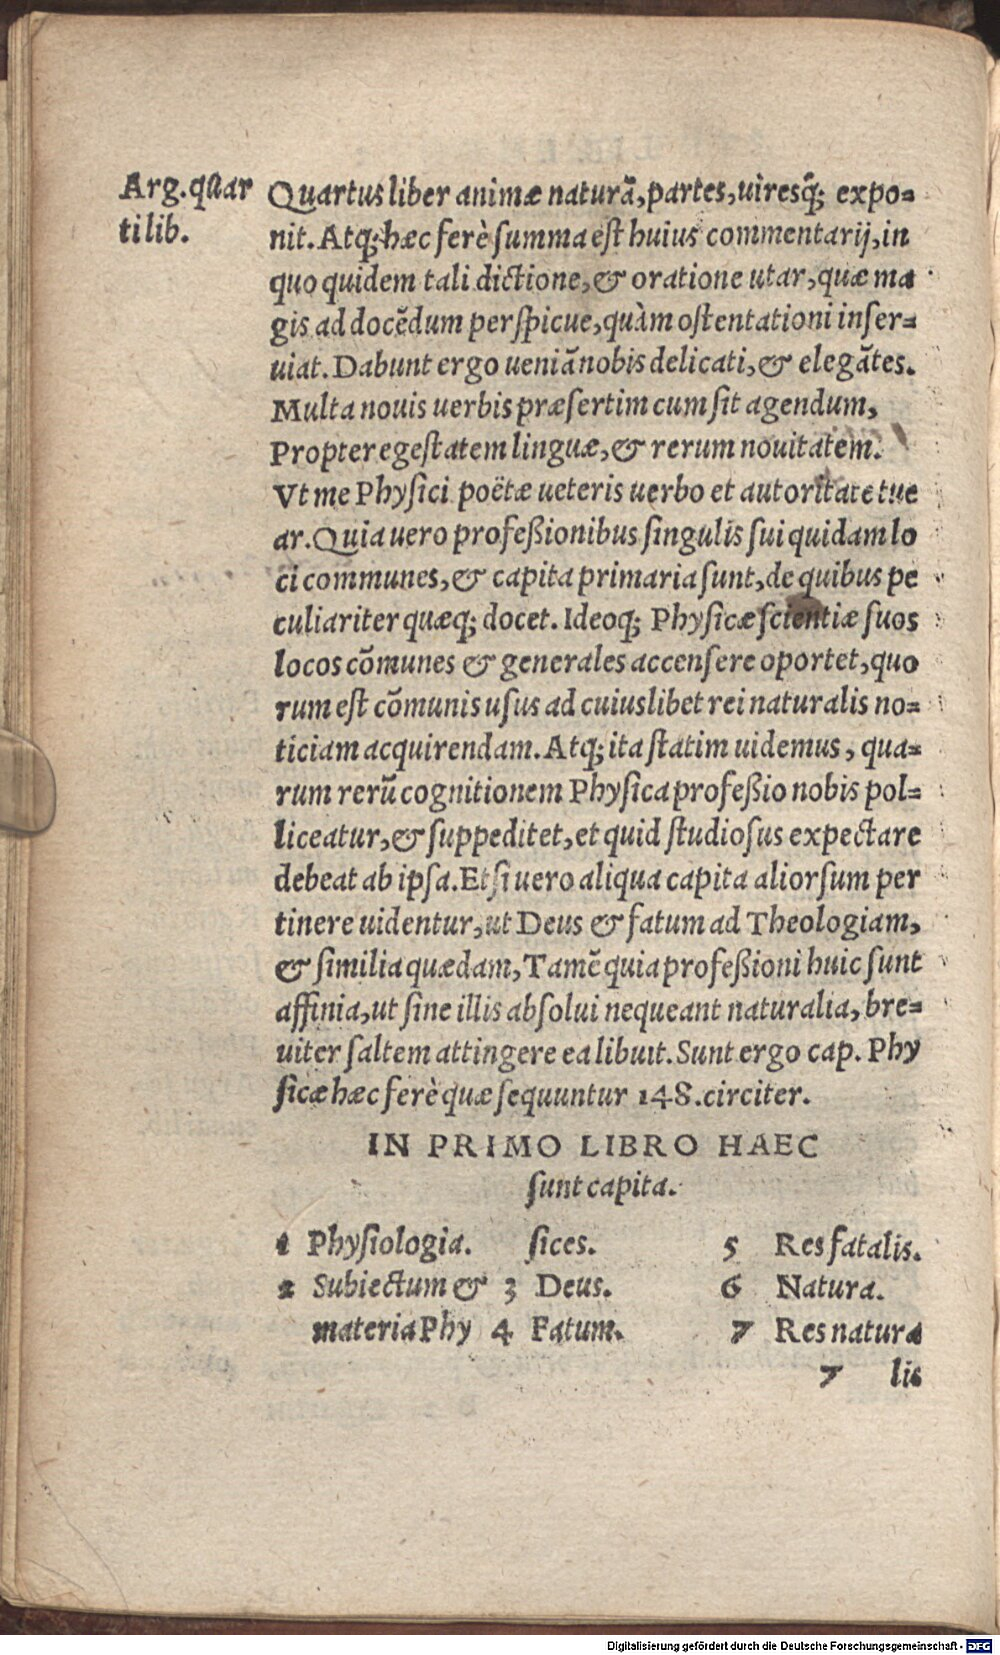 Arg. quar
ti lib.
Quartus liber animæ naturā, partes, uiresq́; expo=
nit. Atq; hæc ferè summa est huius commentarij, in
quo quidem tali dictione, & oratione utar, quæ ma
gis ad docēdum perspicue, quàm ostentationi inser=
uiat. Dabunt ergo ueniā nobis delicati, & elegātes.
Multa nouis uerbis præsertim cum sit agendum,
Propter egestatem linguæ, & rerum nouitatem.
Vt me Physici poëtæ ueteris uerbo et autoritate tue
ar. Quia uero profeßionibus singulis sui quidam lo
ci communes, & capita primaria sunt, de quibus pe
culiariter quæq; docet. Ideoq; Physicæ scientiæ suos
locos cōmunes & generales accensere oportet, quo
rum est cōmunis usus ad cuiuslibet rei naturalis no=
ticiam acquirendam. Atq; ita statim uidemus, qua=
rum rerū cognitionem Physica profeßio nobis pol=
liceatur, & suppeditet, et quid studiosus expectare
debeat ab ipsa. Etsi uero aliqua capita aliorsum per
tinere uidentur, ut Deus & fatum ad Theologiam,
& similia quædam, Tamē quia profeßioni huic sunt
affinia, ut sine illis absolui nequeant naturalia, bre=
uiter saltem attingere ea libuit. Sunt ergo cap. Phy
sicæ hæc ferè quæ sequuntur 148. circiter.
IN PRIMO LIBRO HAEC
sunt capita.
1 Physiologia.
2 Subiectum &
materia Phy
sices.
3 Deus.
4 Fatum.
5 Res fatalis.
6 Natura.
7 Res natura
7 lis
Digitalisierung gefördert durch die Deutsche Forschungsgemeinschaft - DFG